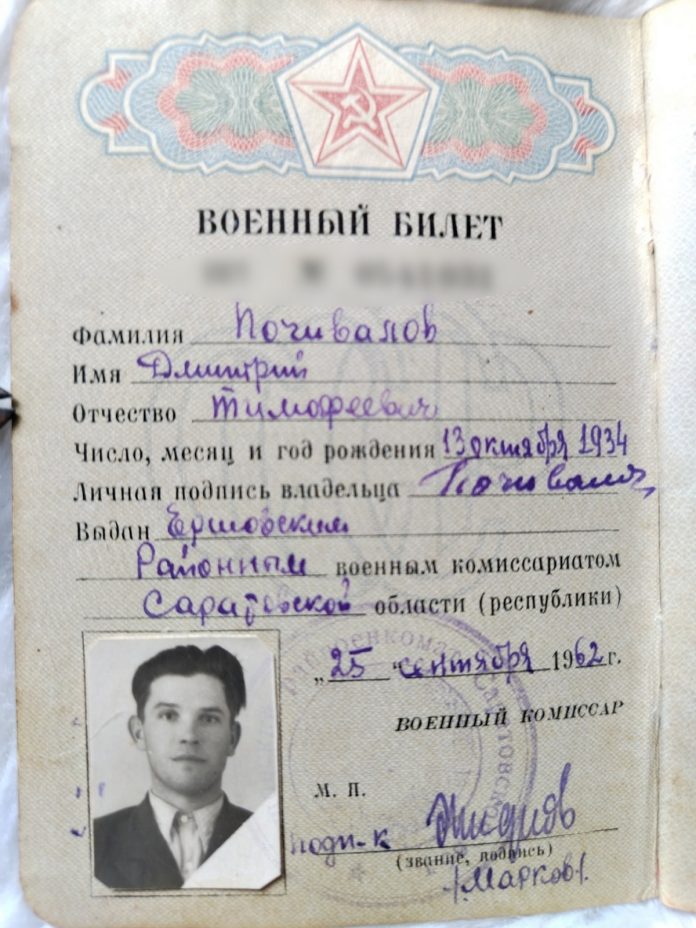 ВОЕННЫЙ БИЛЕТ
Фамилия Почивалов
Имя Дмитрий
Отчество Тимофеевич
Число, месяц и год рождения 13 октября 1934
Личная подпись владельца Почивалов
Выдан Ершовским
Районным военным комиссариатом
Саратовской области (республики)
„25 " сентября 1962 г.
ВОЕННЫЙ КОМИССАР
М. П.
подп-к
(звание, подпись)
/Марков/.